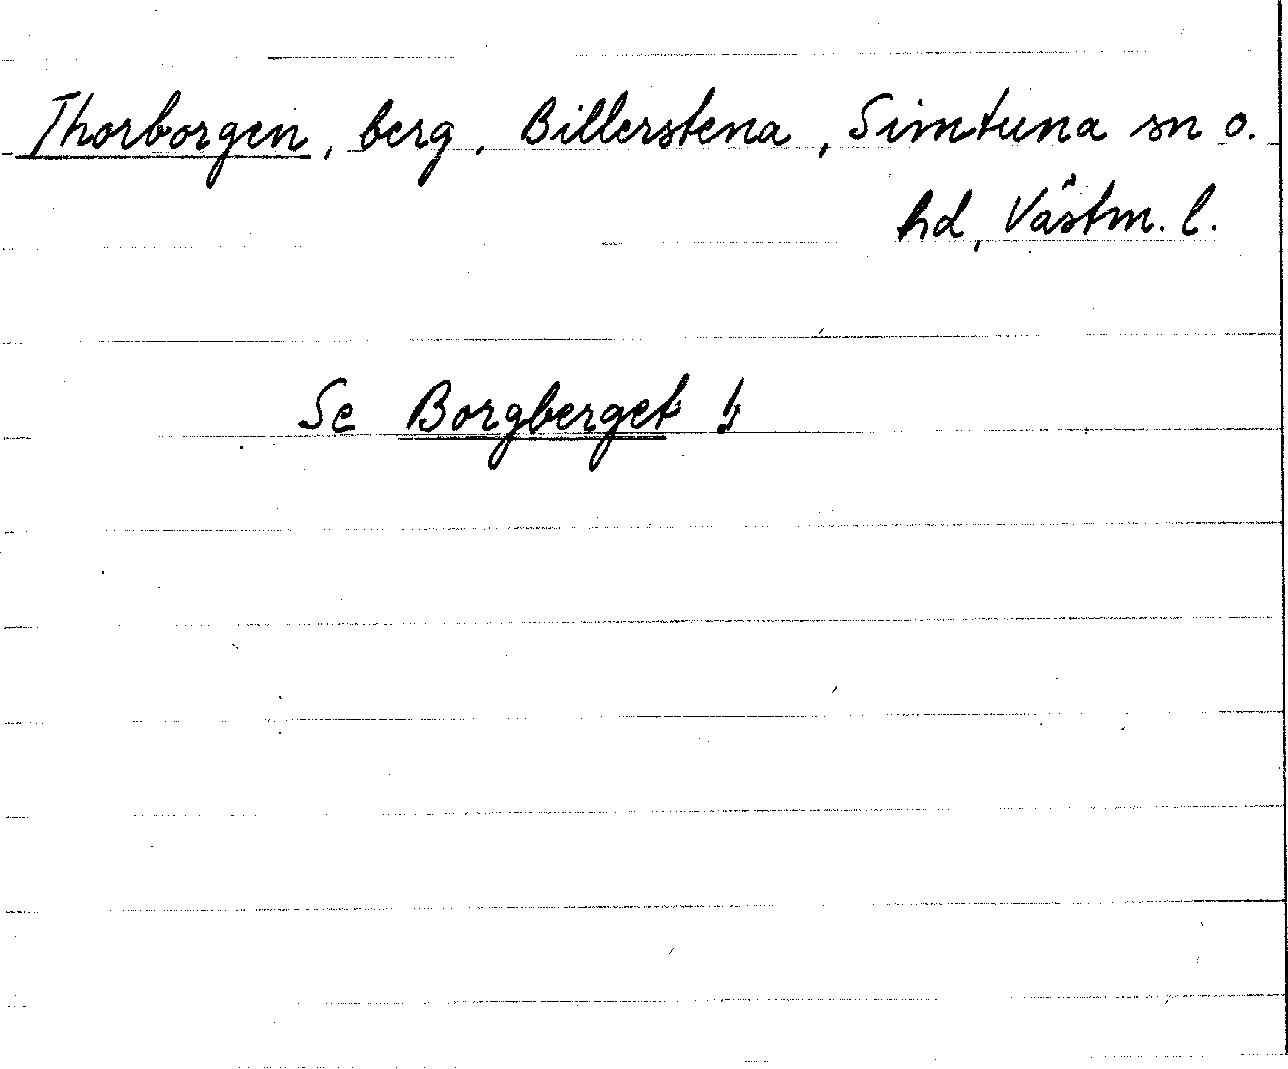 Thorborgen, berg, Billerstena, Simtuna sn o.
hd, Västm. l.
Se Borgberget